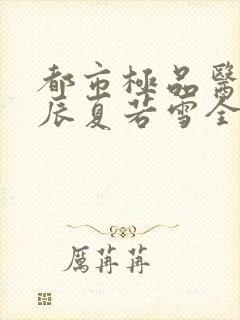 都市極品醫
辰夏若雪全
厲苒苒